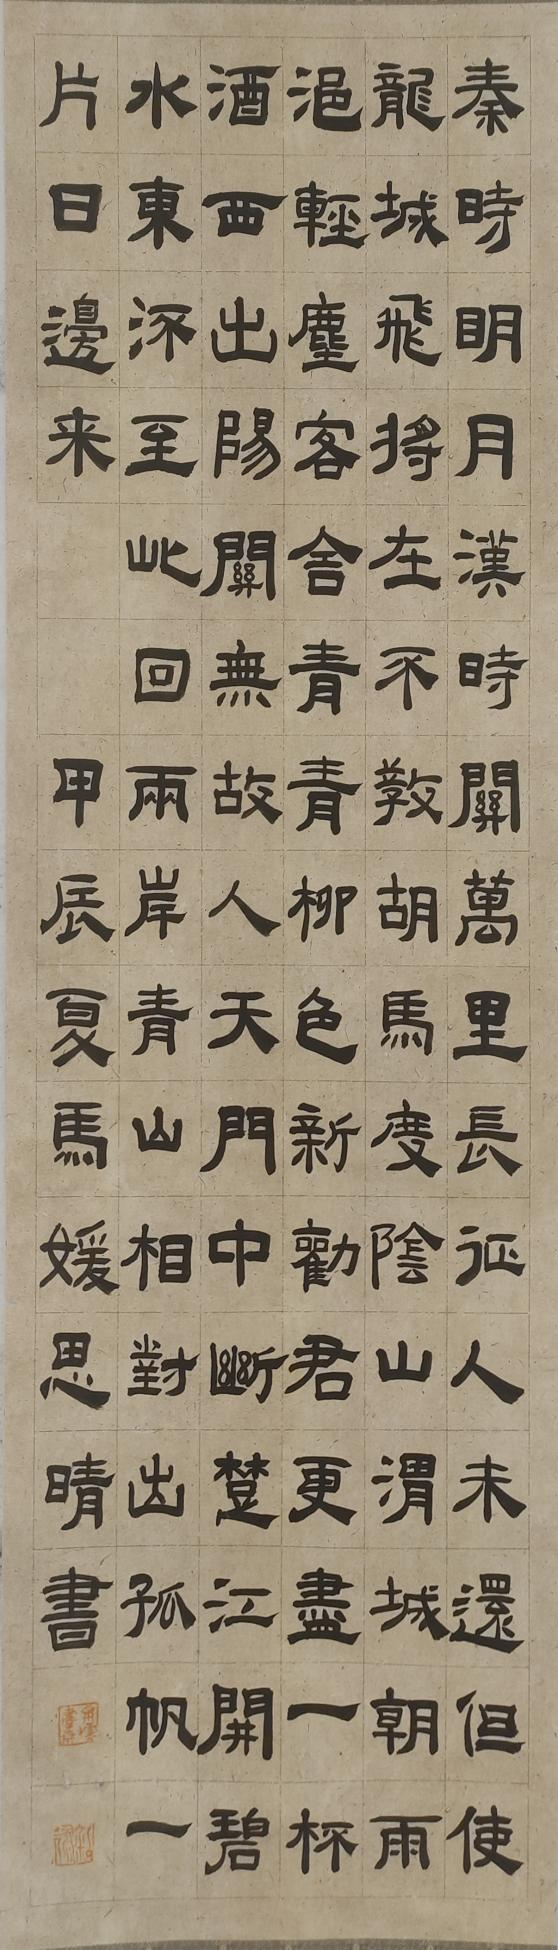 秦時明月漢時關萬里長征人未還但使
龍城飛將在不敎胡馬度陰山渭城朝雨
浥輕塵客舍青青柳色新勸君更盡一杯
酒西出陽關無故人天門中斷楚江開碧
水東流至此回兩岸青山相對出孤帆一
片日邊来
甲辰夏馬媛思晴書